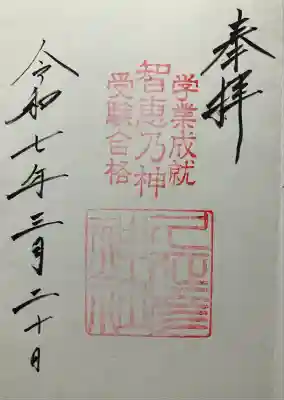 奉拝
学業成就
智恵乃神
受験合格
令和七年三月二十日